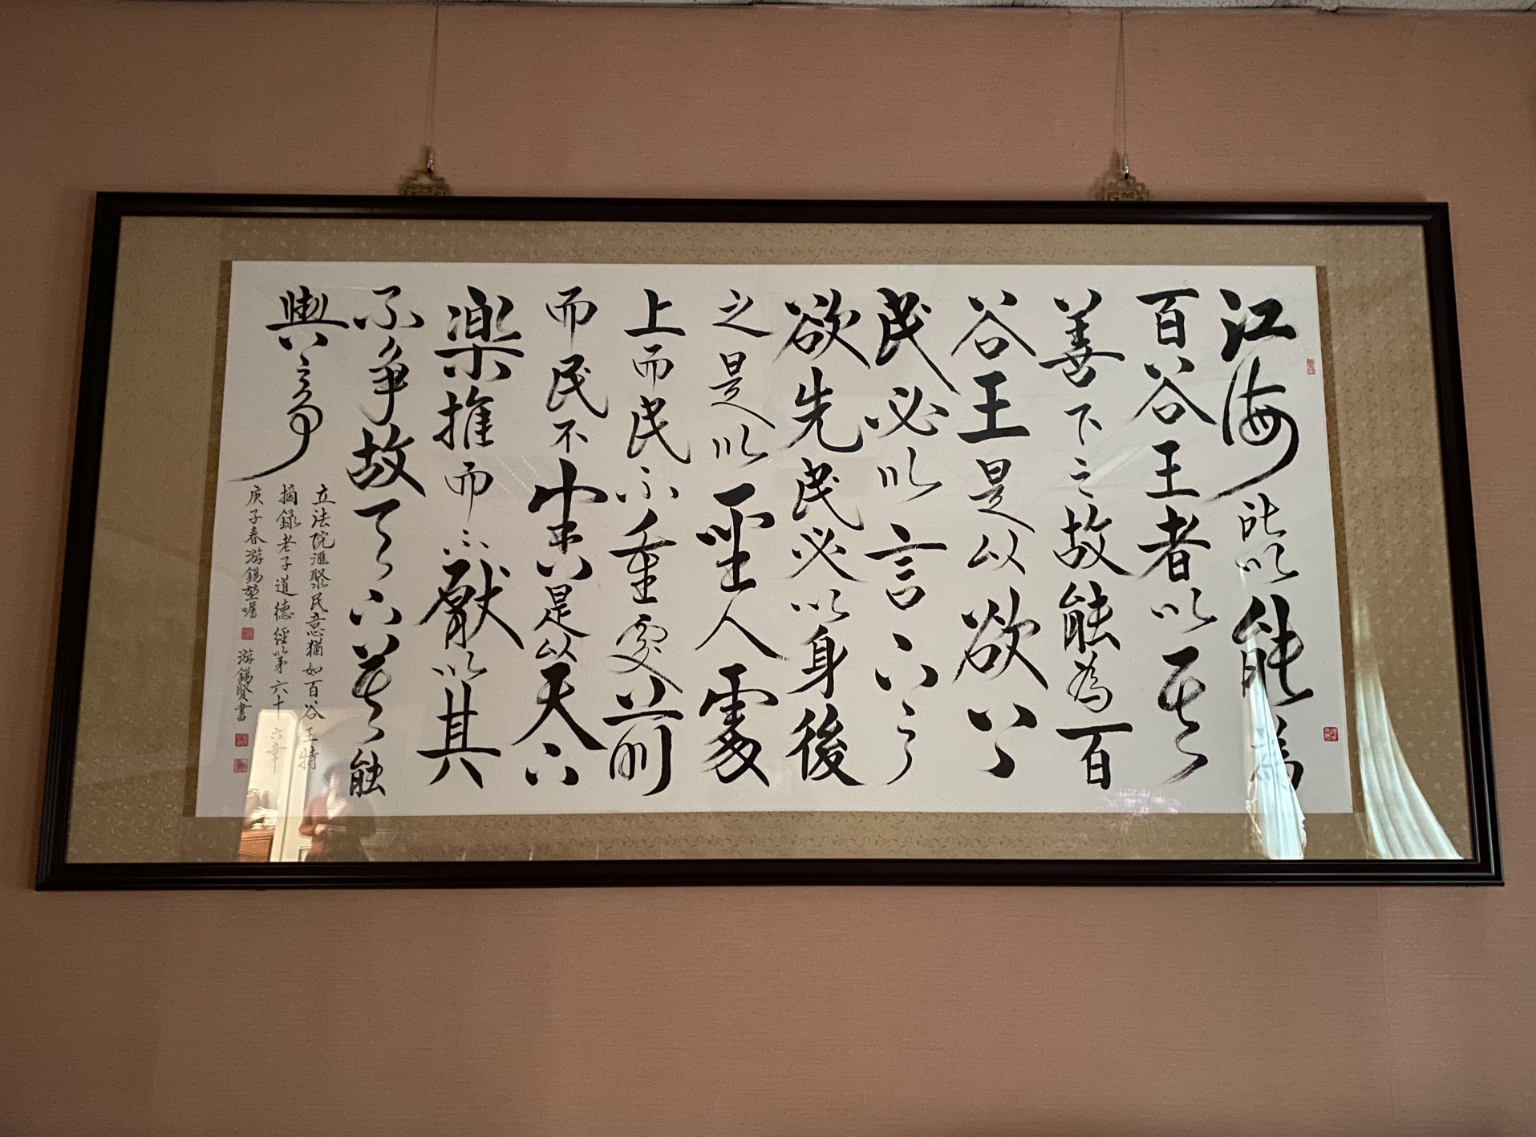 江海所以能為
百谷王者以其
善下之故能為百
谷王是以欲上
民必以言下之
欲先民必以身後
之是以聖人處
上而民不重處前
而民不害是以天下
樂推而不厭以其
不爭故天下莫能
與之爭
立法院滙聚民意猶如百谷王特
摘錄老子道德經第六十六章
庚子春游錫堃囑
游錫賢書